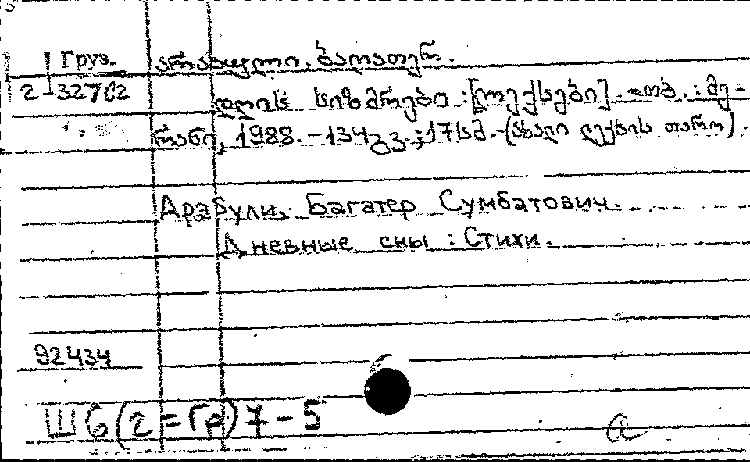 Груз. არაბული, ბაღათერ.
2-32702 დღის სიზმრები : [ლექსები]. - თბ. : მე-
რანი, 1988. - 134გვ.; 17სმ. - (ახალი ლექსის თარო).
Арабули, Багатер Сумбатович.
Дневные сны : Стихи.
92434
Ш6(2=Гр)7-5
a